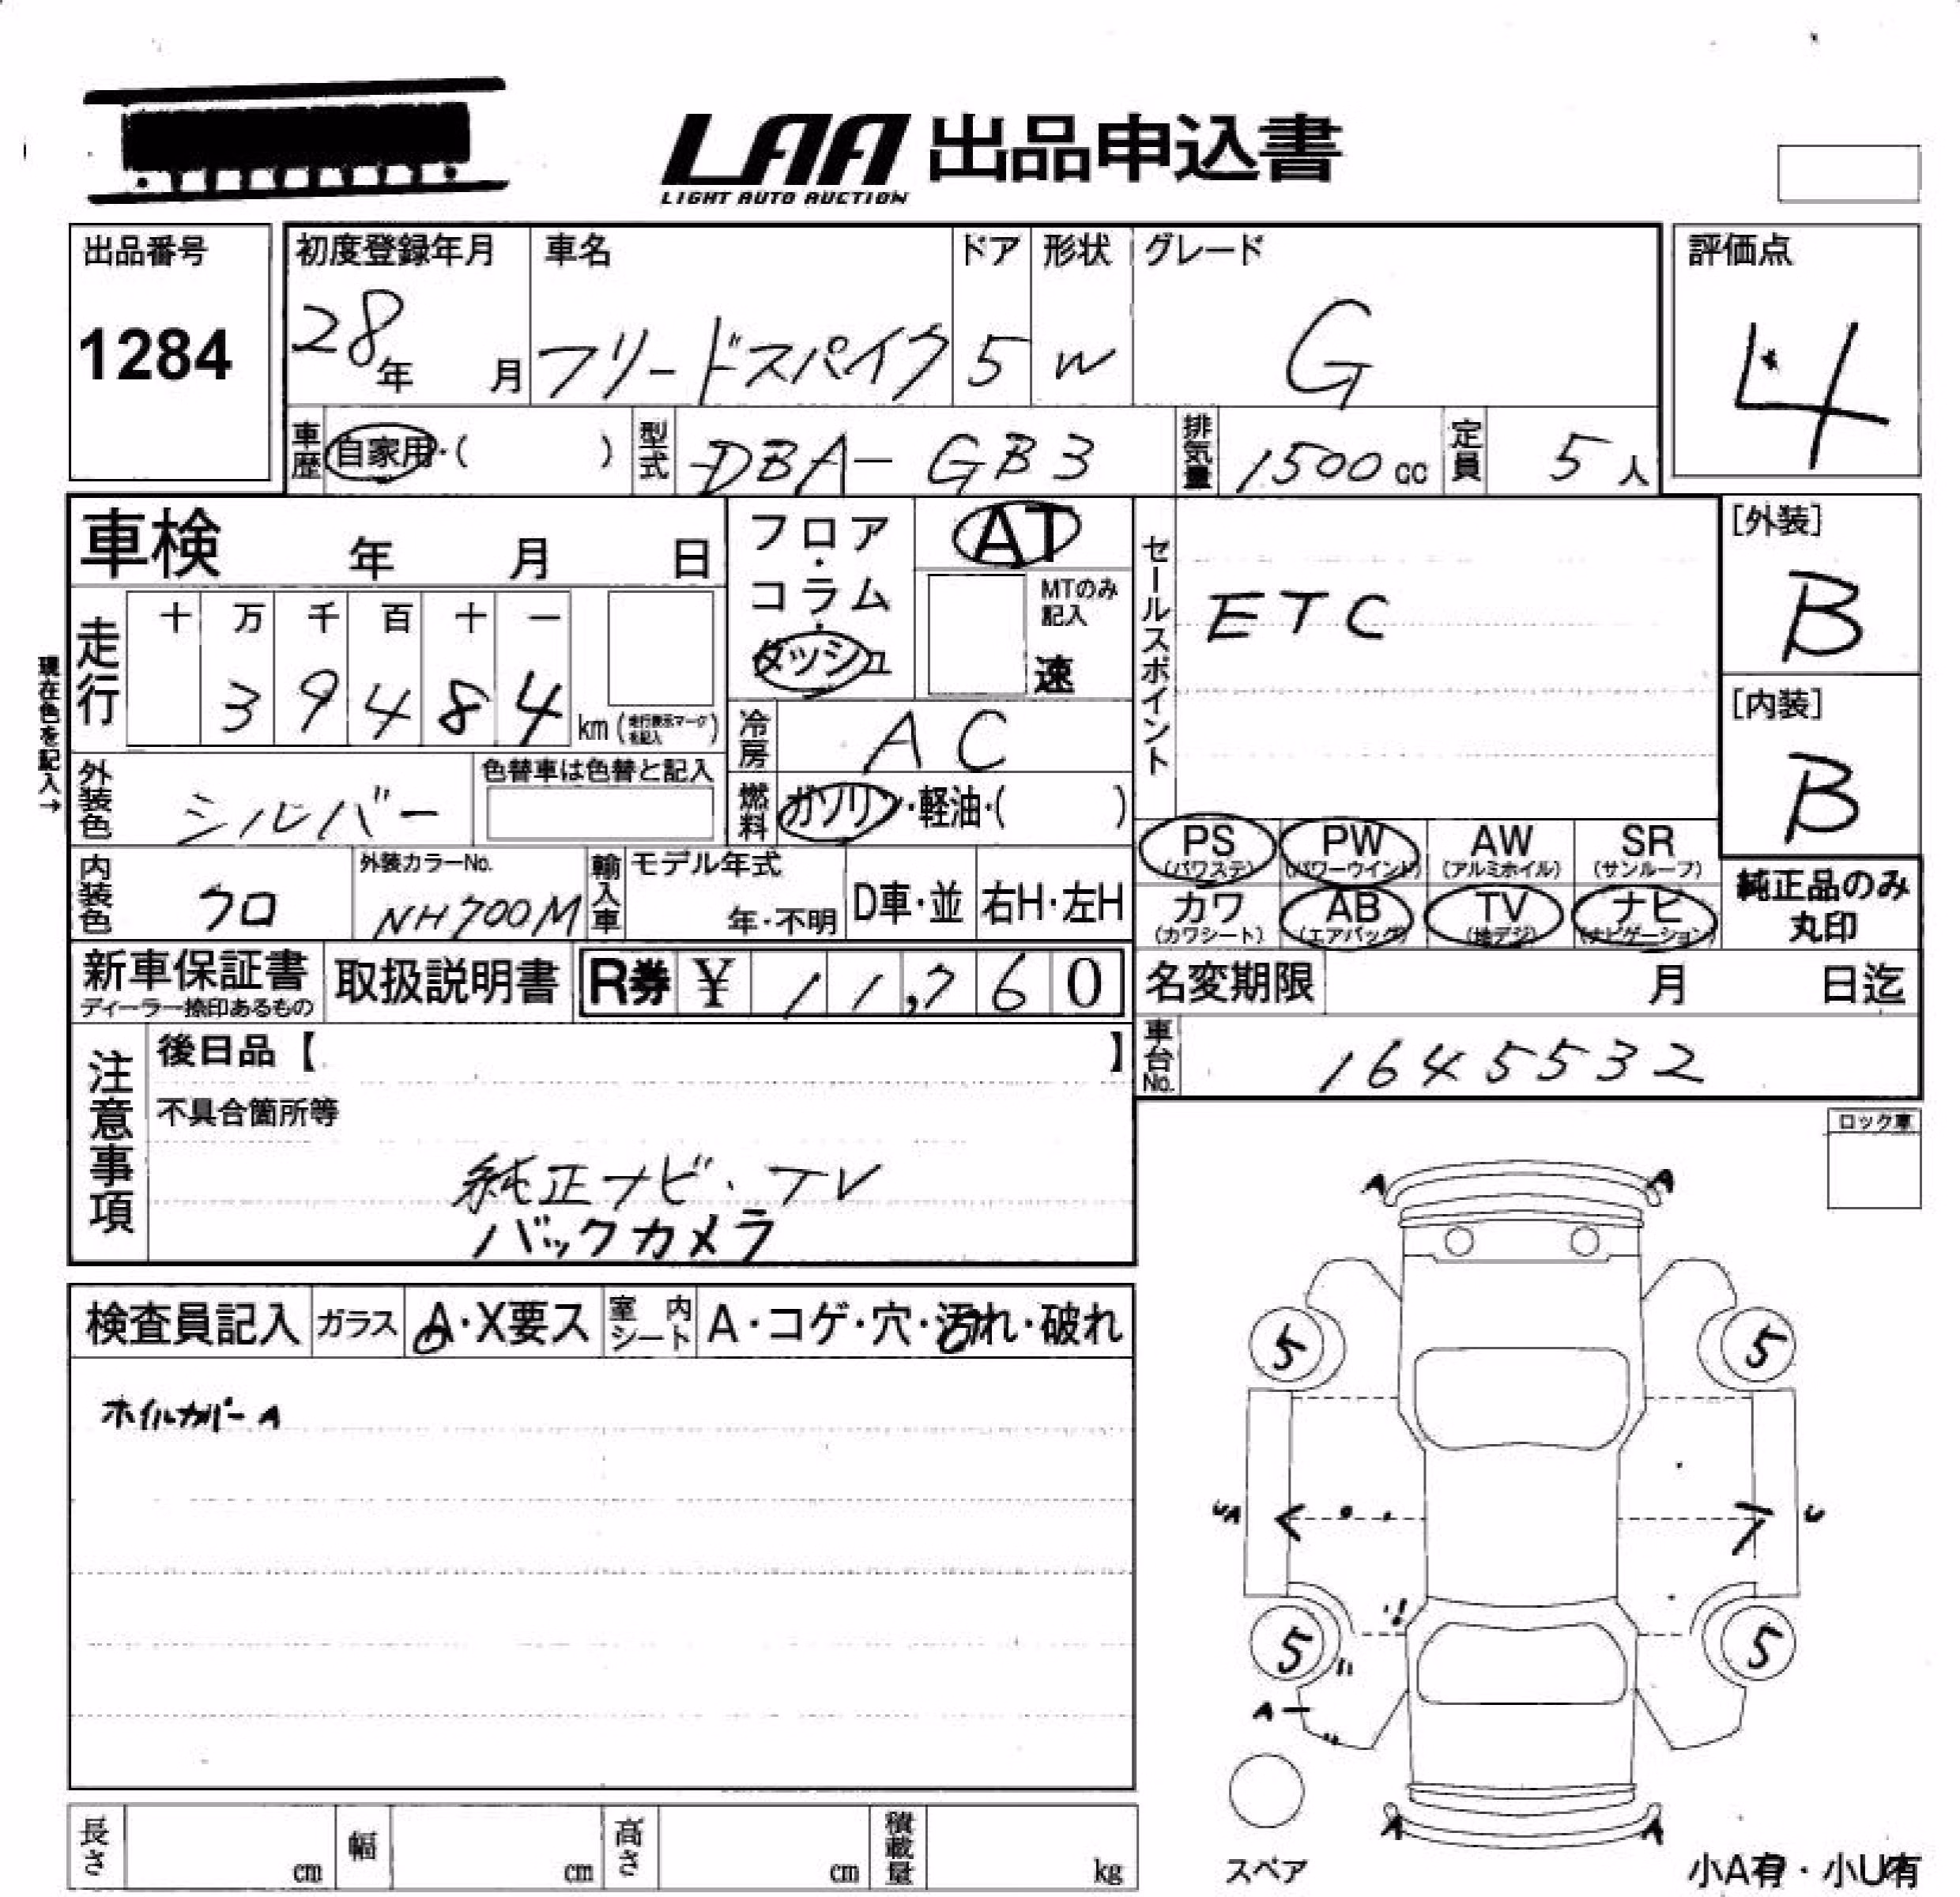 LAA 出品申込書
LIGHT AUTO AUCTION
出品番号
1284
初度登録年月
28年 月
車名
フリードスパイク
ドア
5
形状
W
グレード
G
評価点
4
車歴 自家用・( )
型式 DBA-GB3
排気量 1500cc
定員 5人
車検 年 月 日
フロア・コラム・ダッシュ
AT
MTのみ記入
速
セールスポイント
ETC
[外装]
B
[内装]
B
現在色を記入→
走行
十 万 千 百 十 一
3 9 4 8 4 km (走行表示マークを記入)
冷房 AC
外装色 シルバー
色替車は色替と記入
燃料 ガソリン・軽油・( )
PS (パワステ)
PW (パワーウインド)
AW (アルミホイル)
SR (サンルーフ)
カワ (カワシート)
AB (エアバッグ)
TV (地デジ)
ナビ (ナビゲーション)
純正品のみ
丸印
内装色 クロ
外装カラーNo.
NH700M
輸入車
モデル年式
年・不明
D車・並
右H・左H
新車保証書
ディーラー捺印あるもの
取扱説明書
R券 ¥ 11,760
名変期限 月 日迄
車台No. 1645532
注意事項
後日品【 】
不具合箇所等
純正ナビ・TV
バックカメラ
ロック車
検査員記入
ガラス A・X要ス
室内シート A・コゲ・穴・汚れ・破れ
ホイルカバーA
A A
5 5
UA U
5 5
A
A A
スペア
小A有・小U有
長さ cm
幅 cm
高さ cm
積載量 kg